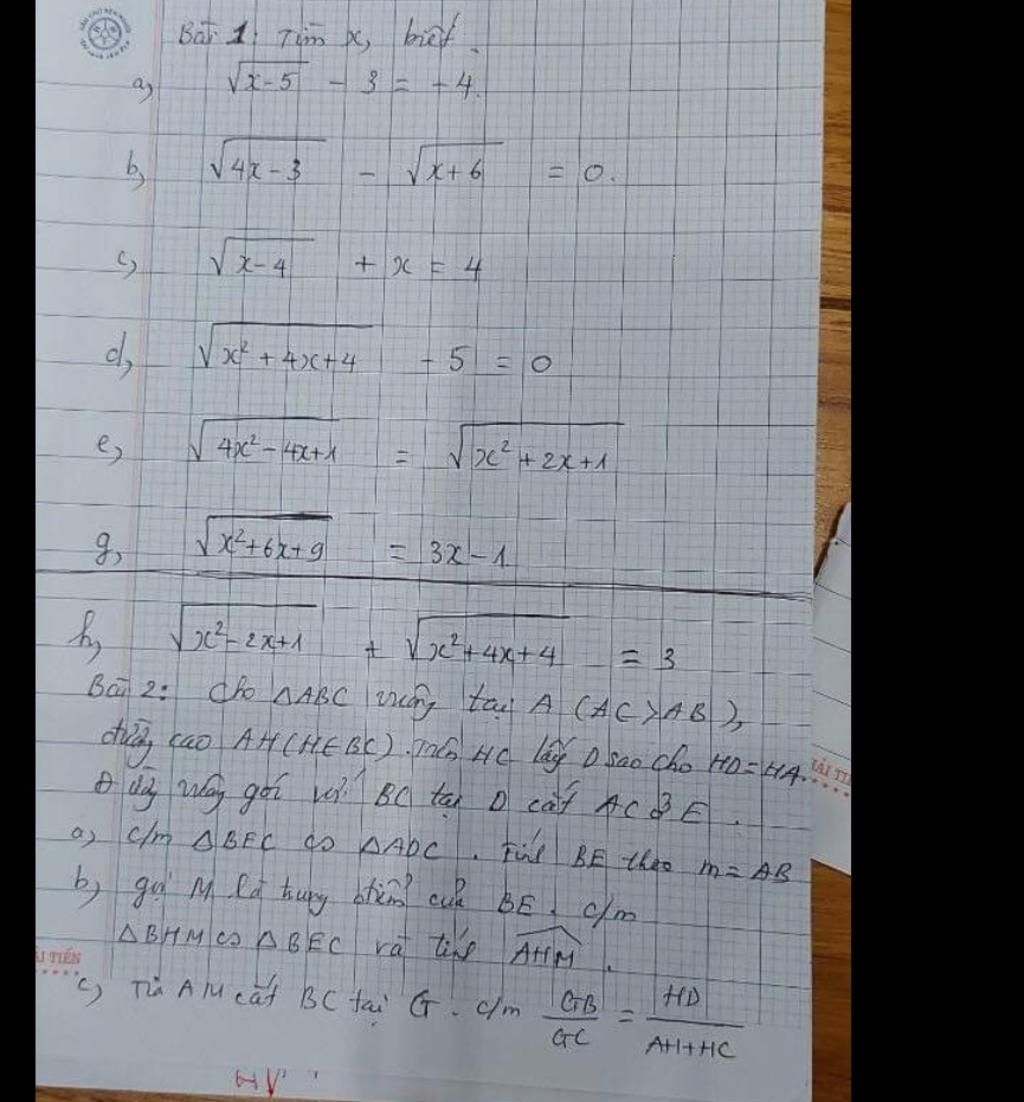 Bài 1: Tìm x, biết.
a, √x-5 - 3 = -4.
b, √4x-3 - √x+6 = 0.
c, √x-4 + x = 4
d, √x²+4x+4 - 5 = 0
e, √4x²-4x+1 = √x²+2x+1
g, √x²+6x+9 = 3x-1
h, √x²-2x+1 + √x²+4x+4 = 3
Bài 2: Cho ΔABC vuông tại A (AC>AB),
đường cao AH (H∈BC). Trên HC lấy D sao cho HD=HA.
đg vuông góc với BC tại D cắt AC ở E.
a, c/m ΔBEC ∽ ΔADC. Tính BE theo m = AB
b, gọi M là trung điểm của BE. c/m
ΔBHM ∽ ΔBEC và tính AHM.
ẢI TIẾN
c, Tia AM cắt BC tại G. c/m GB/GC = HD/AH+HC